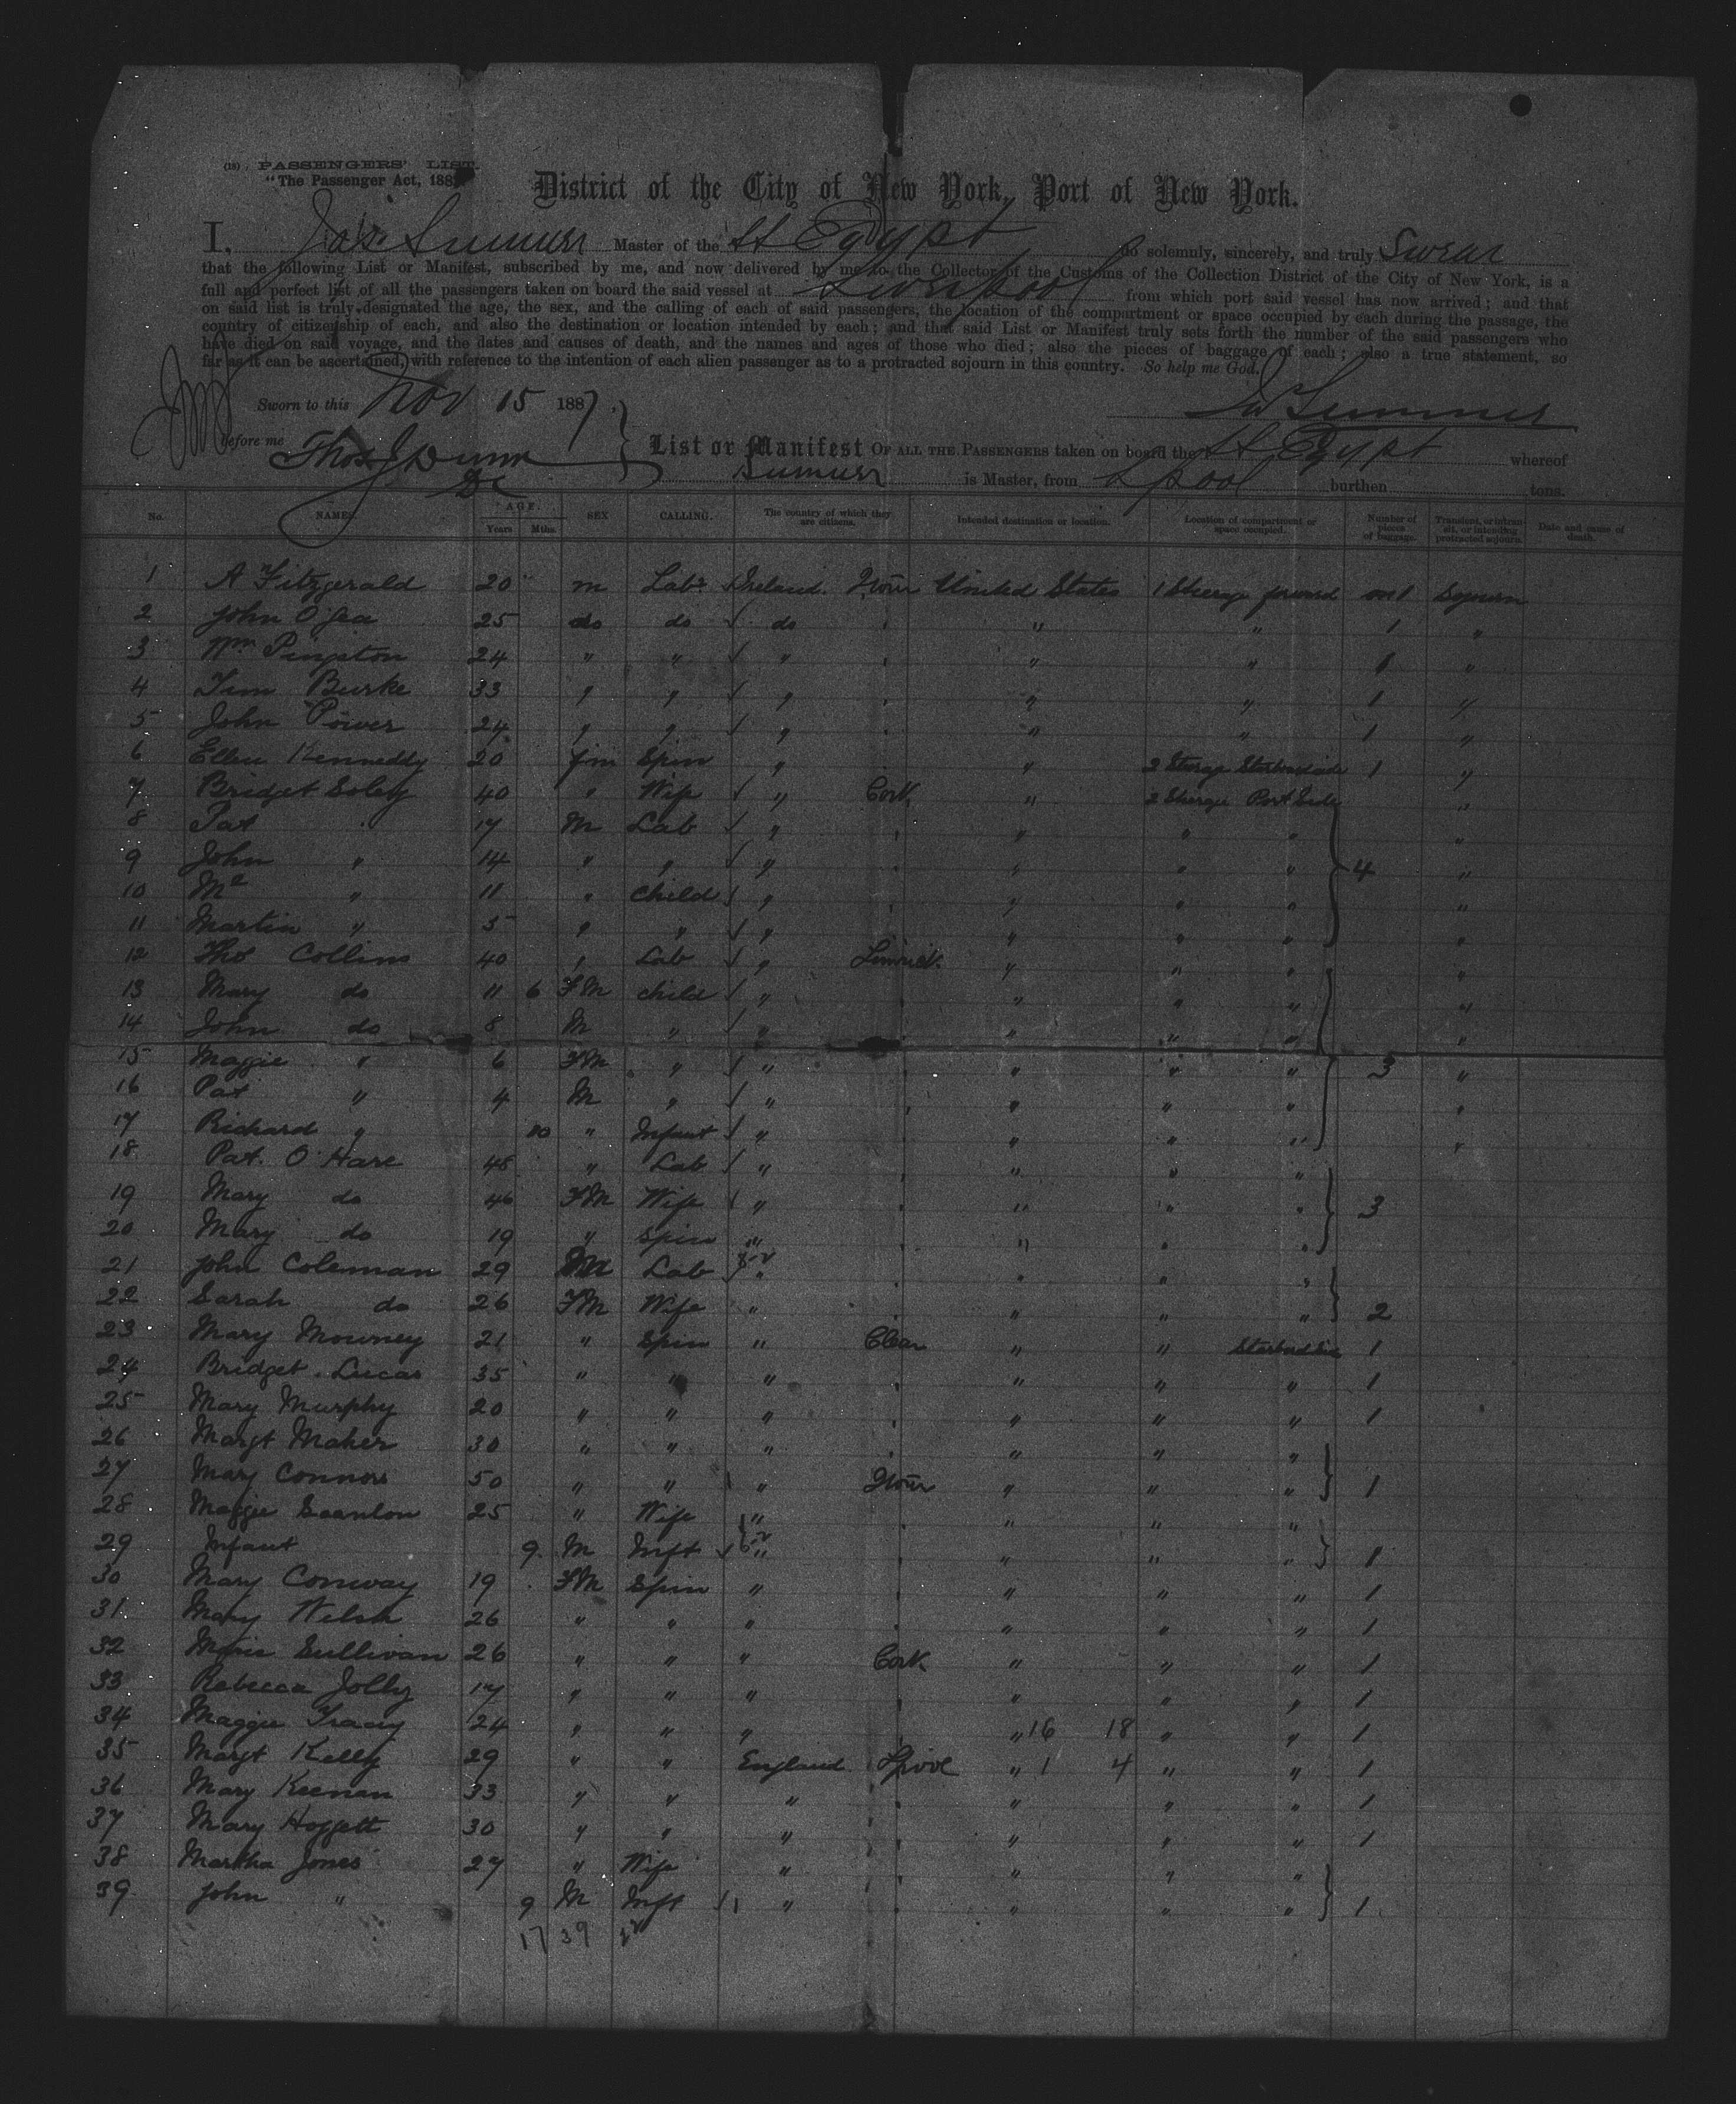 (18) PASSENGERS' LIST.
"The Passenger Act, 188
District of the City of New York, Port of New York.
I, Jas. Sumner Master of the SS Egypt do solemnly, sincerely, and truly Swear
that the following List or Manifest, subscribed by me, and now delivered by me to the Collector of the Customs of the Collection District of the City of New York, is a
full and perfect list of all the passengers taken on board the said vessel at Liverpool from which port said vessel has now arrived; and that
on said list is truly designated the age, the sex, and the calling of each of said passengers, the location of the compartment or space occupied by each during the passage, the
country of citizenship of each, and also the destination or location intended by each; and that said List or Manifest truly sets forth the number of the said passengers who
have died on said voyage, and the dates and causes of death, and the names and ages of those who died; also the pieces of baggage of each; also a true statement, so
far as it can be ascertained, with reference to the intention of each alien passenger as to a protracted sojourn in this country. So help me God.
Sworn to this Nov 15 1887.
Jas Sumner
before me Thos J Dunn
List or Manifest OF ALL THE PASSENGERS taken on board the SS Egypt whereof
Sumner is Master, from Lpool burthen tons.
No. NAMES. AGE. Years Mths. SEX CALLING. The country of which they are citizens. Intended destination or location. Location of compartment or space occupied. Number of pieces of baggage. Transient, or in transit, or intending protracted sojourn. Date and cause of death.
1 A Fitzgerald 20 m Labr Ireland. United States 1 Sterage forward 1 Sojourn
2 John O'Gea 25 do do do " " 1 "
3 Wm 24 " " " " " 1 "
4 Tim Burke 33 " " " " " 1 "
5 John Power 24 " " " " " 1 "
6 Ellen Kenneddy 20 fm Spin " " 2 Sterage Starboard side 1 "
7 Bridget Soley 40 " Wife " Cork " 2 Sterage Port Side "
8 Pat " 17 M Lab " " " " "
9 John " 14 " " " " " " 4 "
10 " 11 " Child " " " " "
11 Martin " 5 " " " " " " "
12 Ths Collins 40 " Lab " Limrick " " " "
13 Mary do 11 6 FM child " " " " "
14 John do 8 M " " " " " "
15 Maggie " 6 FM " " " " " 3 "
16 Pat " 4 M " " " " " "
17 Richard " 10 " Infant " " " " "
18 Pat. O'Hare 48 " Lab " " " "
19 Mary do 46 FM Wife " " " " 3
20 Mary do 19 " Spin " " " "
21 John Coleman 29 M Lab " " " "
22 Sarah do 26 FM Wife " " " " 2
23 Mary Mowney 21 " Spin " Clear " " Starbrd Side 1
24 Bridget Lucas 35 " " " " " " 1
25 Mary Murphy 20 " " " " " " 1
26 Margt Maher 30 " " " " " "
27 Mary Connors 50 " " " " " " 1
28 Maggie Scanlon 25 " Wife " " " "
29 Infant 9 M Inft " " " " 1
30 Mary Conway 19 FM Spin " " " " 1
31 Mary Welsh 26 " " " " " " 1
32 Sullivan 26 " " " Cork " " " 1
33 Rebecca Jolly 17 " " " " " " 1
34 Maggie Tracey 24 " " " " 16 18 " " 1
35 Margt Kelly 29 " " England Lpool " 1 4 " " 1
36 Mary Keenan 33 " " " " " " 1
37 Mary Hoggett 30 " " " " " " 1
38 Martha Jones 27 " Wife " " " "
39 John " 9 M Inft " " " " 1
17 39